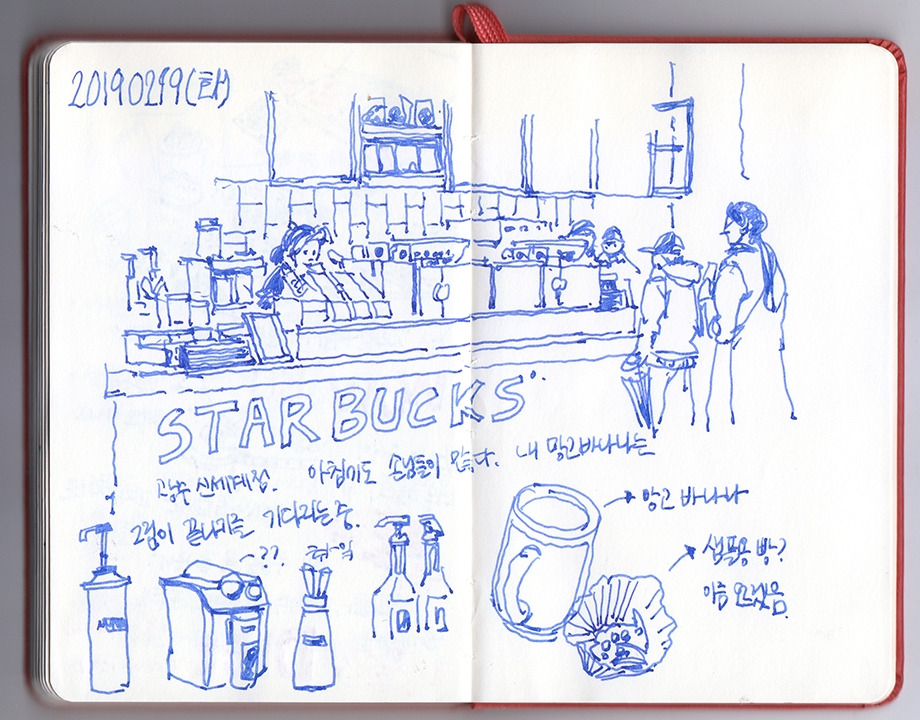 20190219(화)
STARBUCKS
광주 신세계점. 아침에도 손님들이 많다. 내 망고바나나는
그림이 끝나기를 기다리는중.
~??
→ 망고 바나나
→ 샘플용 빵?
이름 모르겠음.